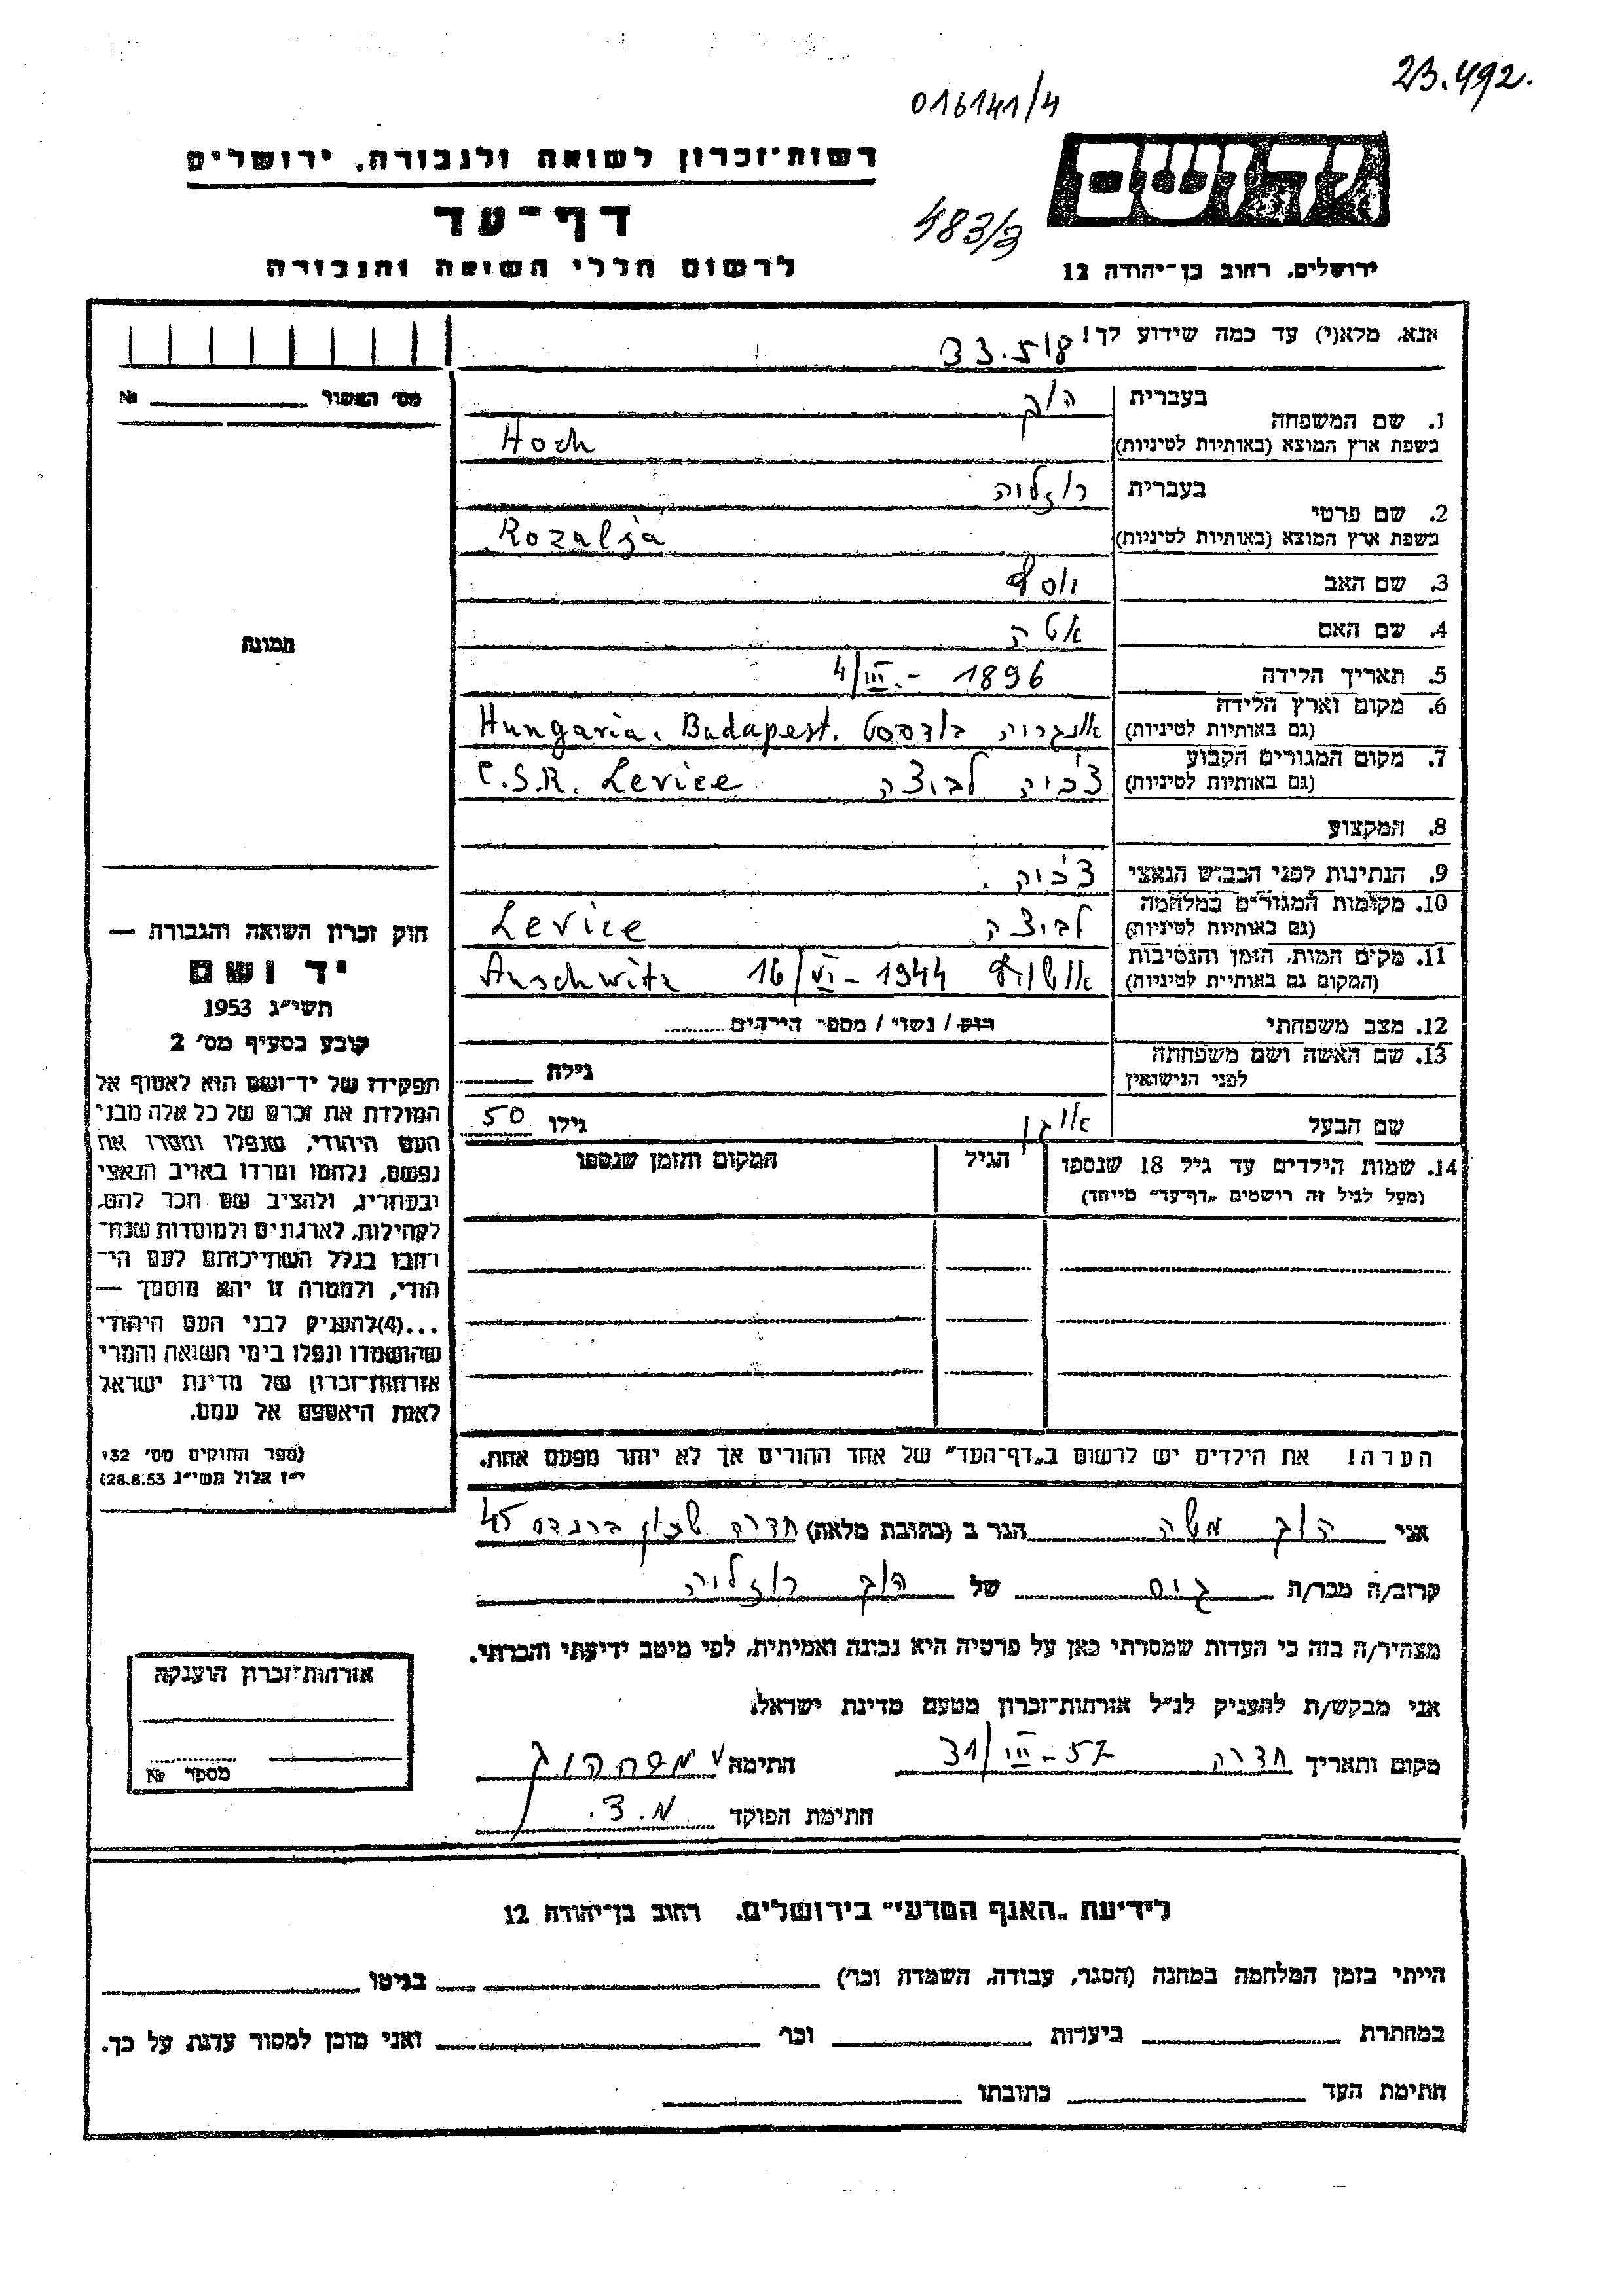 23.492.
016141/4
רשות-זכרון לשואה ולגבורה, ירושלים
יד ושם
דף-עד
483/3
לרשום חללי השואה והגבורה
ירושלים, רחוב בן-יהודה 12
אנא, מלא(י) עד כמה שידוע לך!
33.518
מס' האשור № 
בעברית הוך
1. שם המשפחה
בשפת ארץ המוצא (באותיות לטיניות) Hoch
בעברית רוזליה
2. שם פרטי
בשפת ארץ המוצא (באותיות לטיניות) Rozalja
3. שם האב יוסף
4. שם האם אטה
5. תאריך הלידה 4/III.- 1896
6. מקום וארץ הלידה
(גם באותיות לטיניות) אונגריה בודפסט Hungaria. Budapest.
7. מקום המגורים הקבוע
(גם באותיות לטיניות) צ'כיה לבוצה C.S.R. Levice
8. המקצוע
9. הנתינות לפני הכבוש הנאצי צ'כיה.
10. מקומות המגורים במלחמה
(גם באותיות לטיניות) לבוצה Levice
11. מקום המות, הזמן והנסיבות
(המקום גם באותיות לטיניות) אושויץ 16/VI- 1944 Auschwitz
12. מצב משפחתי רוק / נשוי / מספר הילדים
13. שם האשה ושם משפחתה
לפני הנישואין גילה
שם הבעל אוגן גילו 50
14. שמות הילדים עד גיל 18 שנספו הגיל המקום והזמן שנספו
(מעל לגיל זה רושמים "דף-עד" מיוחד)
הערה! את הילדים יש לרשום ב"דף-העד" של אחד ההורים אך לא יותר מפעם אחת.
תמונה
חוק זכרון השואה והגבורה —
יד ושם
תשי"ג 1953
קובע בסעיף מס' 2
תפקידו של יד-ושם הוא לאסוף אל
המולדת את זכרם של כל אלה מבני
העם היהודי, שנפלו ומסרו את
נפשם, נלחמו ומרדו באויב הנאצי
ובעוזריו, ולהציב שם וזכר להם,
לקהילות, לארגונים ולמוסדות שנח-
רבו בגלל השתייכותם לעם הי-
הודי, ולמטרה זו יהא מוסמך —
...(4) להעניק לבני העם היהודי
שהושמדו ונפלו בימי השואה והמרי
אזרחות-זכרון של מדינת ישראל
לאות היאספם אל עמם.
(ספר החוקים מס' 132
י"ז אלול תשי"ג 28.8.53)
אני הוך משה הגר ב (כתובת מלאה) חדרה שכון ברנדס 45
קרוב/ה מכר/ה של הוך רוזליה
מצהיר/ה בזה כי העדות שמסרתי כאן על פרטיה היא נכונה ואמיתית, לפי מיטב ידיעתי והכרתי.
אני מבקש/ת להעניק לנ"ל אזרחות-זכרון מטעם מדינת ישראל.
מקום ותאריך חדרה 31/III-57 חתימה משה הוך
חתימת הפוקד מ.צ.
אזרחות-זכרון הוענקה
מספר №
לידיעת "האגף המדעי" בירושלים, רחוב בן-יהודה 12
הייתי בזמן המלחמה במחנה (הסגר, עבודה, השמדה וכו') בגיטו
במחתרת ביערות וכו' ואני מוכן למסור עדות על כך.
חתימת העד כתובתו